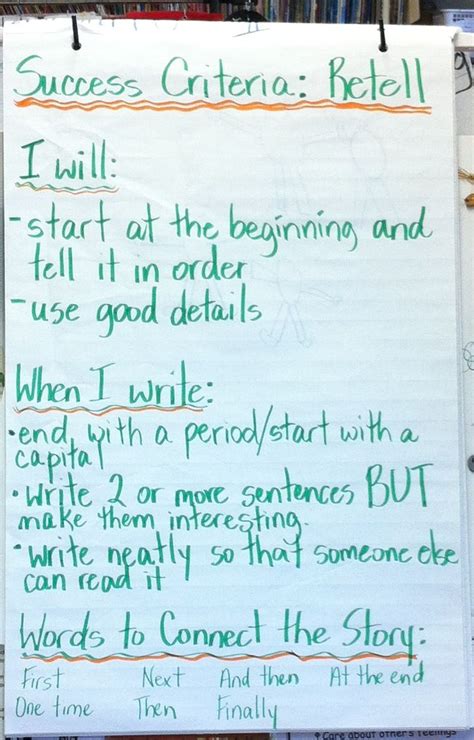 Success Criteria: Retell
I will:
-start at the beginning and
tell it in order
-use good details
When I write:
•end with a period/start with a
capital
•Write 2 or more sentences BUT
make them interesting.
•write neatly so that someone else
can read it
Words to Connect the Story:
First Next And then At the end
One time Then Finally
Care about other's feelings